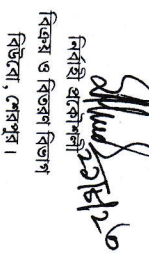 নির্বাহী প্রকৌশলী
বিক্রয় ও বিতরণ বিভাগ
বিউবো, শেরপুর।